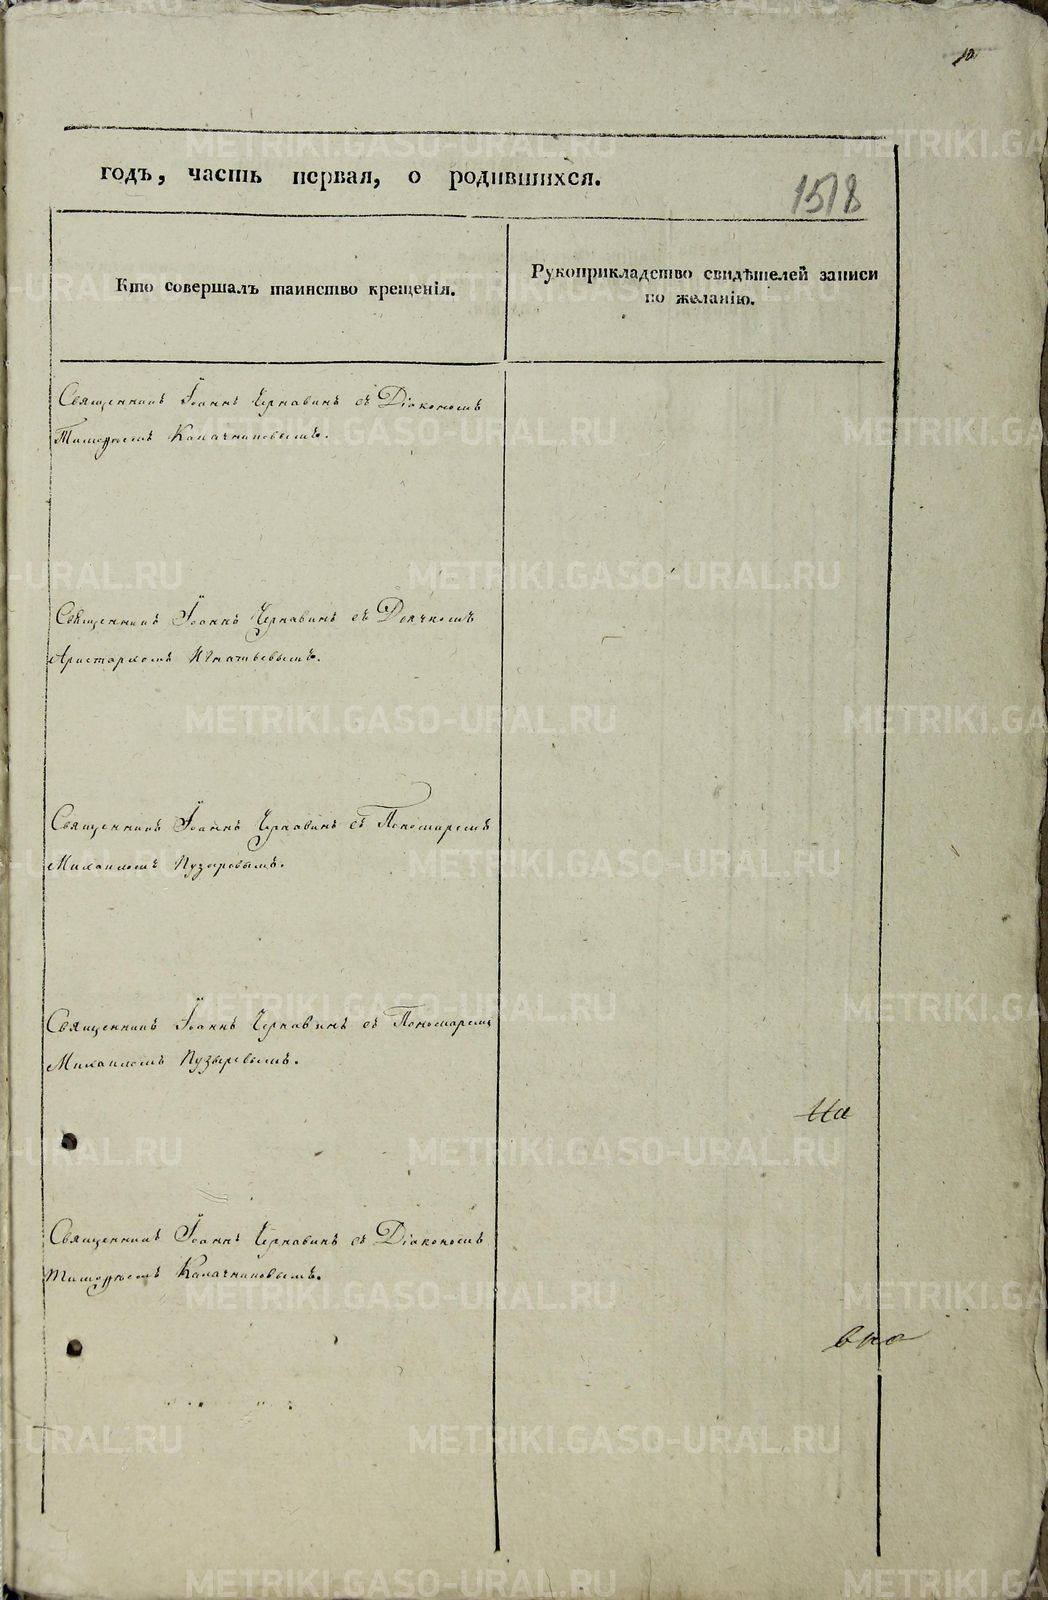 годъ, часть первая, о родившихся.
1518
Кто совершалъ таинство крещенія.
Рукоприкладство свидѣтелей записи
по желанію.
Священникъ Іоаннъ Чернавинъ съ Діакономъ
Тимофеемъ Калачниковымъ.
Священникъ Іоаннъ Чернавинъ съ Дьячкомъ
Аристархомъ Игнатьевымъ.
Священникъ Іоаннъ Чернавинъ съ Пономаремъ
Михаиломъ Пузыревымъ.
Священникъ Іоаннъ Чернавинъ съ Пономаремъ
Михаиломъ Пузыревымъ.
Священникъ Іоаннъ Чернавинъ съ Діакономъ
Тимофеемъ Калачниковымъ.
METRIKI.GASO-URAL.RU